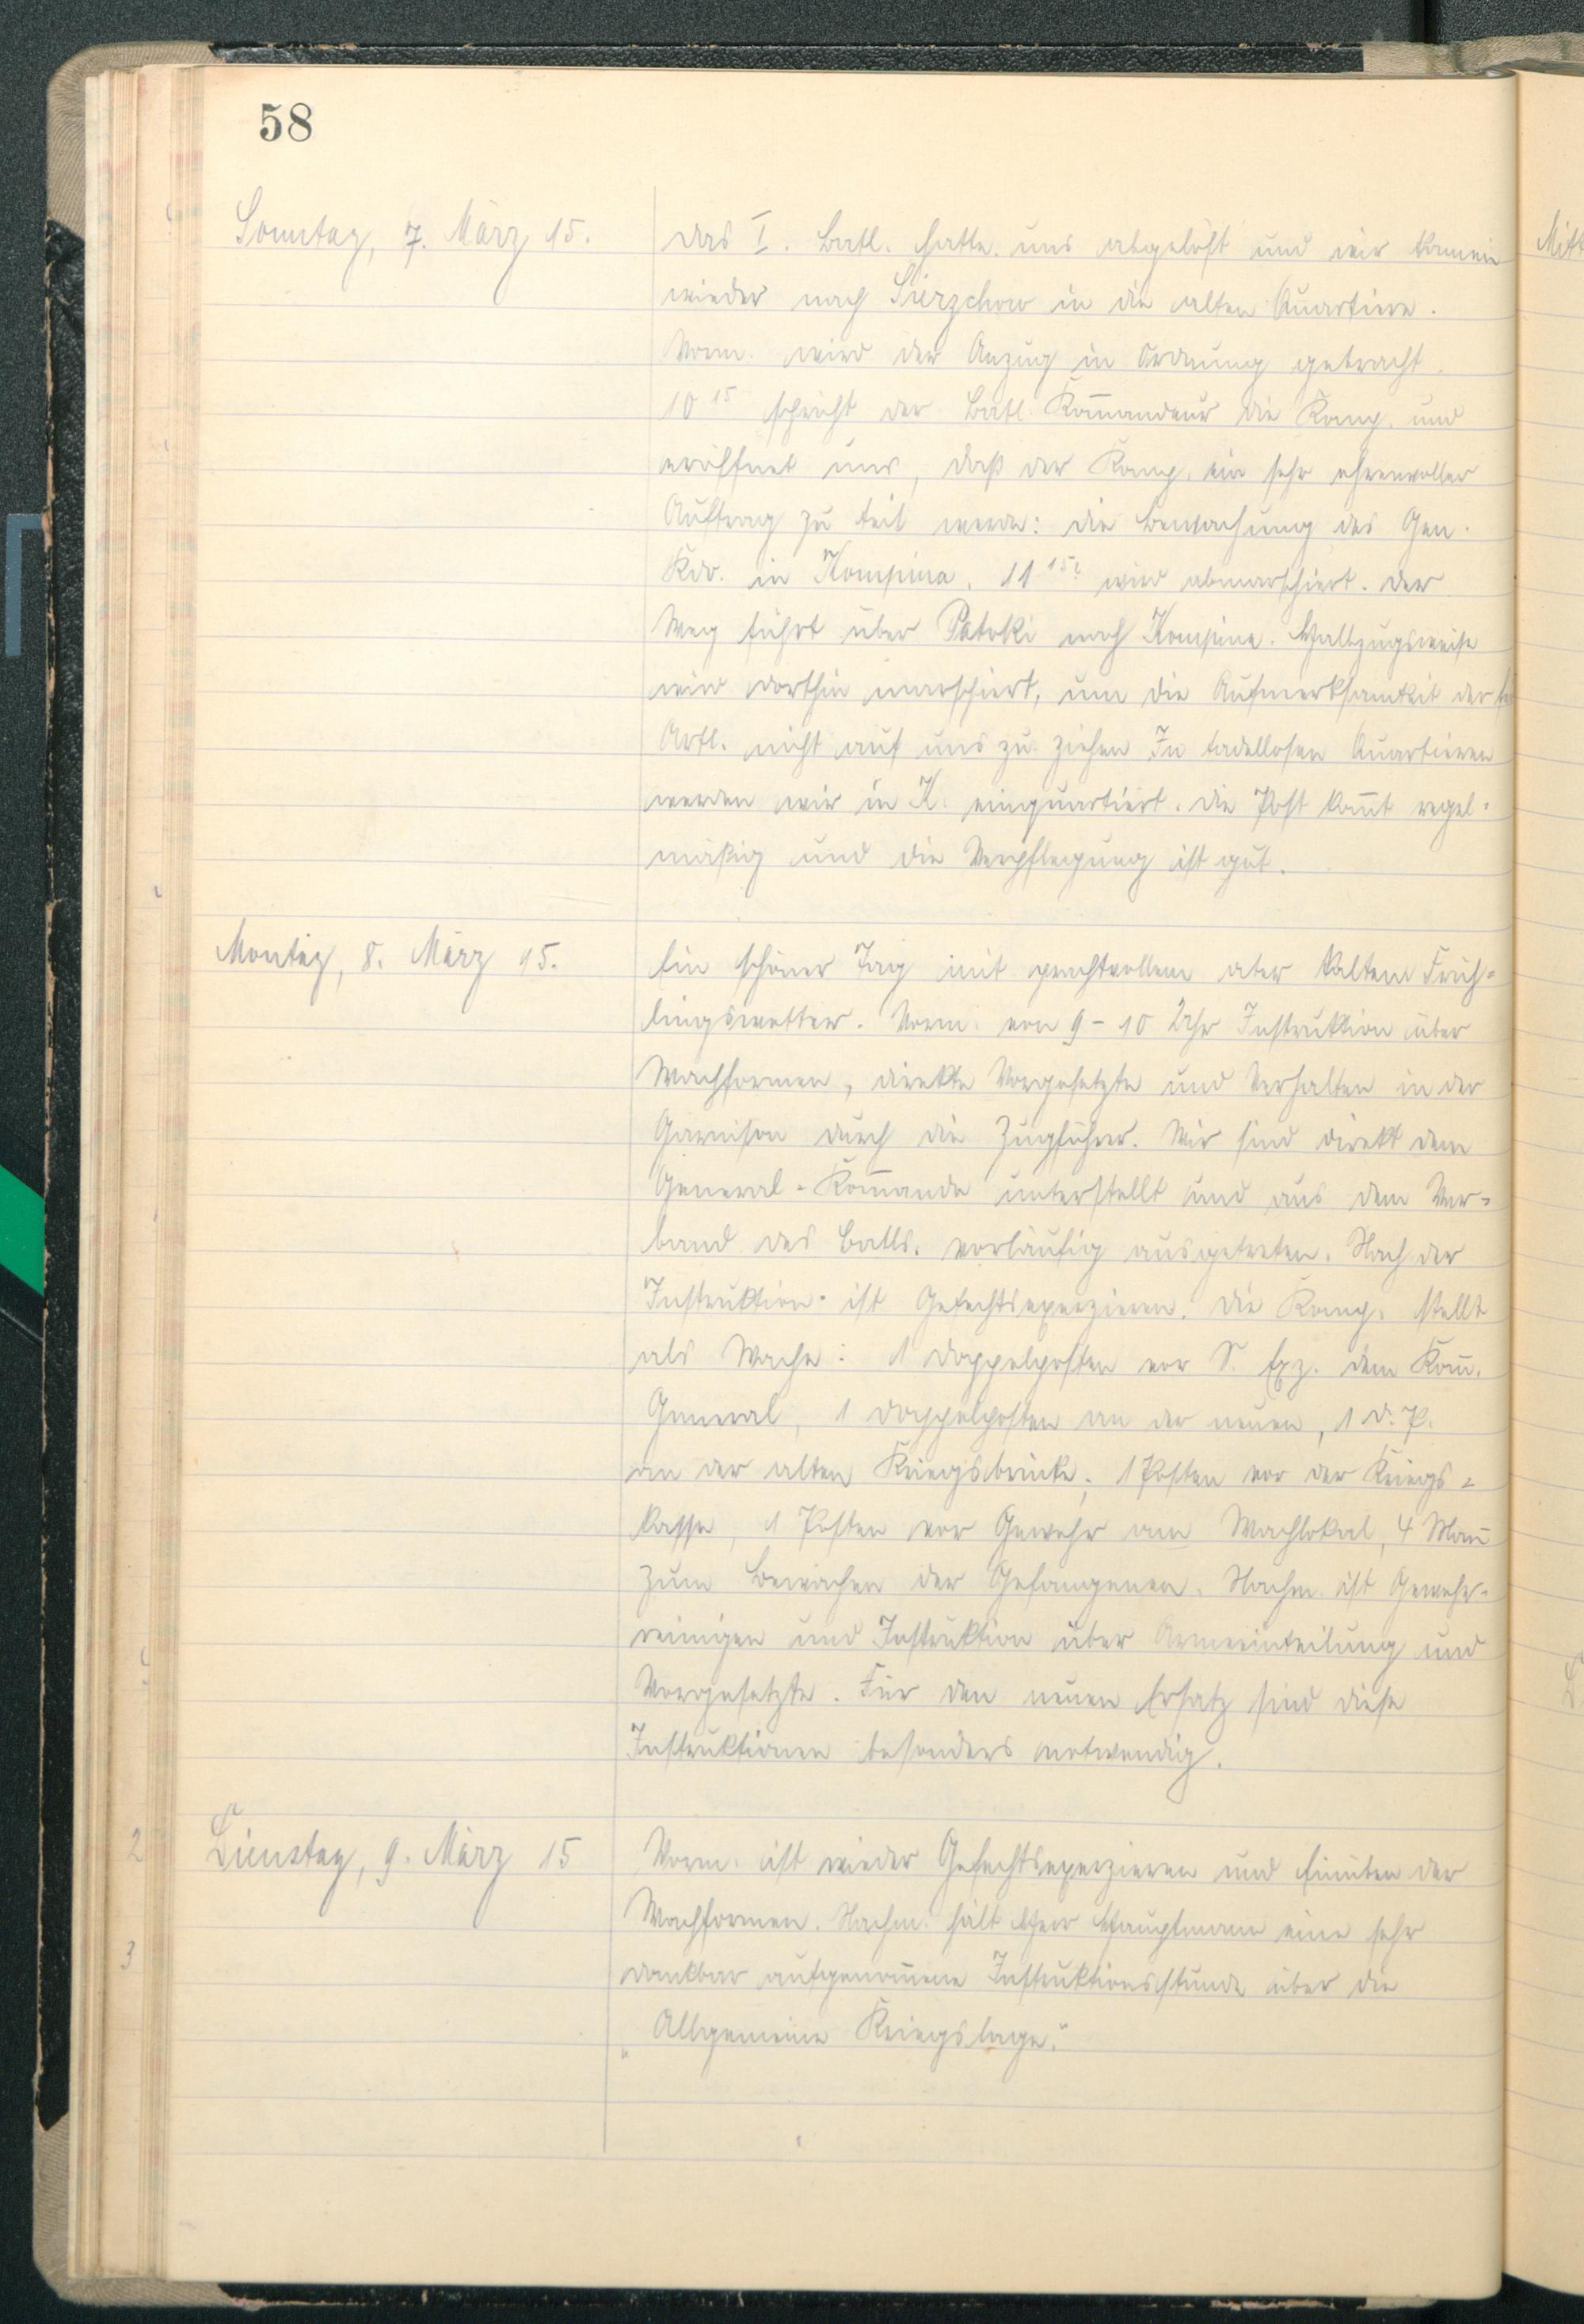 58
Sonntag, 7. März 15.
Das I. Batl. hatte uns abgelöst und wir kamen
wieder nach Sierzchow in die alten Quartiere.
Vorm. wird der Anzug in Ordnung gebracht.
10 15 spricht der Batl. Kom̅andeur die Komp. und
eröffnet uns, daß der Komp. ein sehr ehrenvoller
Auftrag zu teil werde: die Bewachung des Gen.
Kdo. in Kompina. 11 15 wird abmarschiert. Der
Weg führt über Patoki nach Kompina. Halbzugsweise
wird dorthin marschiert, um die Aufmerksamkeit der
Artl. nicht auf uns zu ziehen In tadellosen Quartieren
werden wir in K. einquartiert. Die Post kom̅t regel-
mäßig und die Verpflegung ist gut.
Montag, 8. März 15.
Ein schöner Tag mit prachtvollem aber kalten Früh-
lingswetter. Vorm. von 9 - 10 Uhr Instruktion über
Wachformen, direkte Vorgesetzte und Verhalten in der
Garnison durch die Zugführer. Wir sind direkt dem
General-Kom̅ando unterstellt und aus dem Ver-
band des Batls. vorläufig ausgetreten. Nach der
Instruktion ist Gefechtsexerzieren. Die Komp. stellt
als Wache: 1 Doppelposten vor S. Exz. dem Kom̅.
General, 1 Doppelposten an der neuen, 1 D. P.
an der alten Kriegsbrücke, 1 Posten vor der Kriegs-
kasse, 1 Posten vor Gewehr am Wachlokal, 4 Man̅
zum Bewachen der Gefangenen. Nachm. ist Gewehr-
reinigen und Instruktion über Armeeinteilung und
Vorgesetzte. Für den neuen Ersatz sind diese
Instruktionen besonders notwendig.
Dienstag, 9. März 15
Vorm. ist wieder Gefechtsexerzieren und Einüben der
Wachformen. Nachm. hält Herr Hauptmann eine sehr
dankbar aufgenom̅ene Instruktionsstunde über die
„Allgemeine Kriegslage."